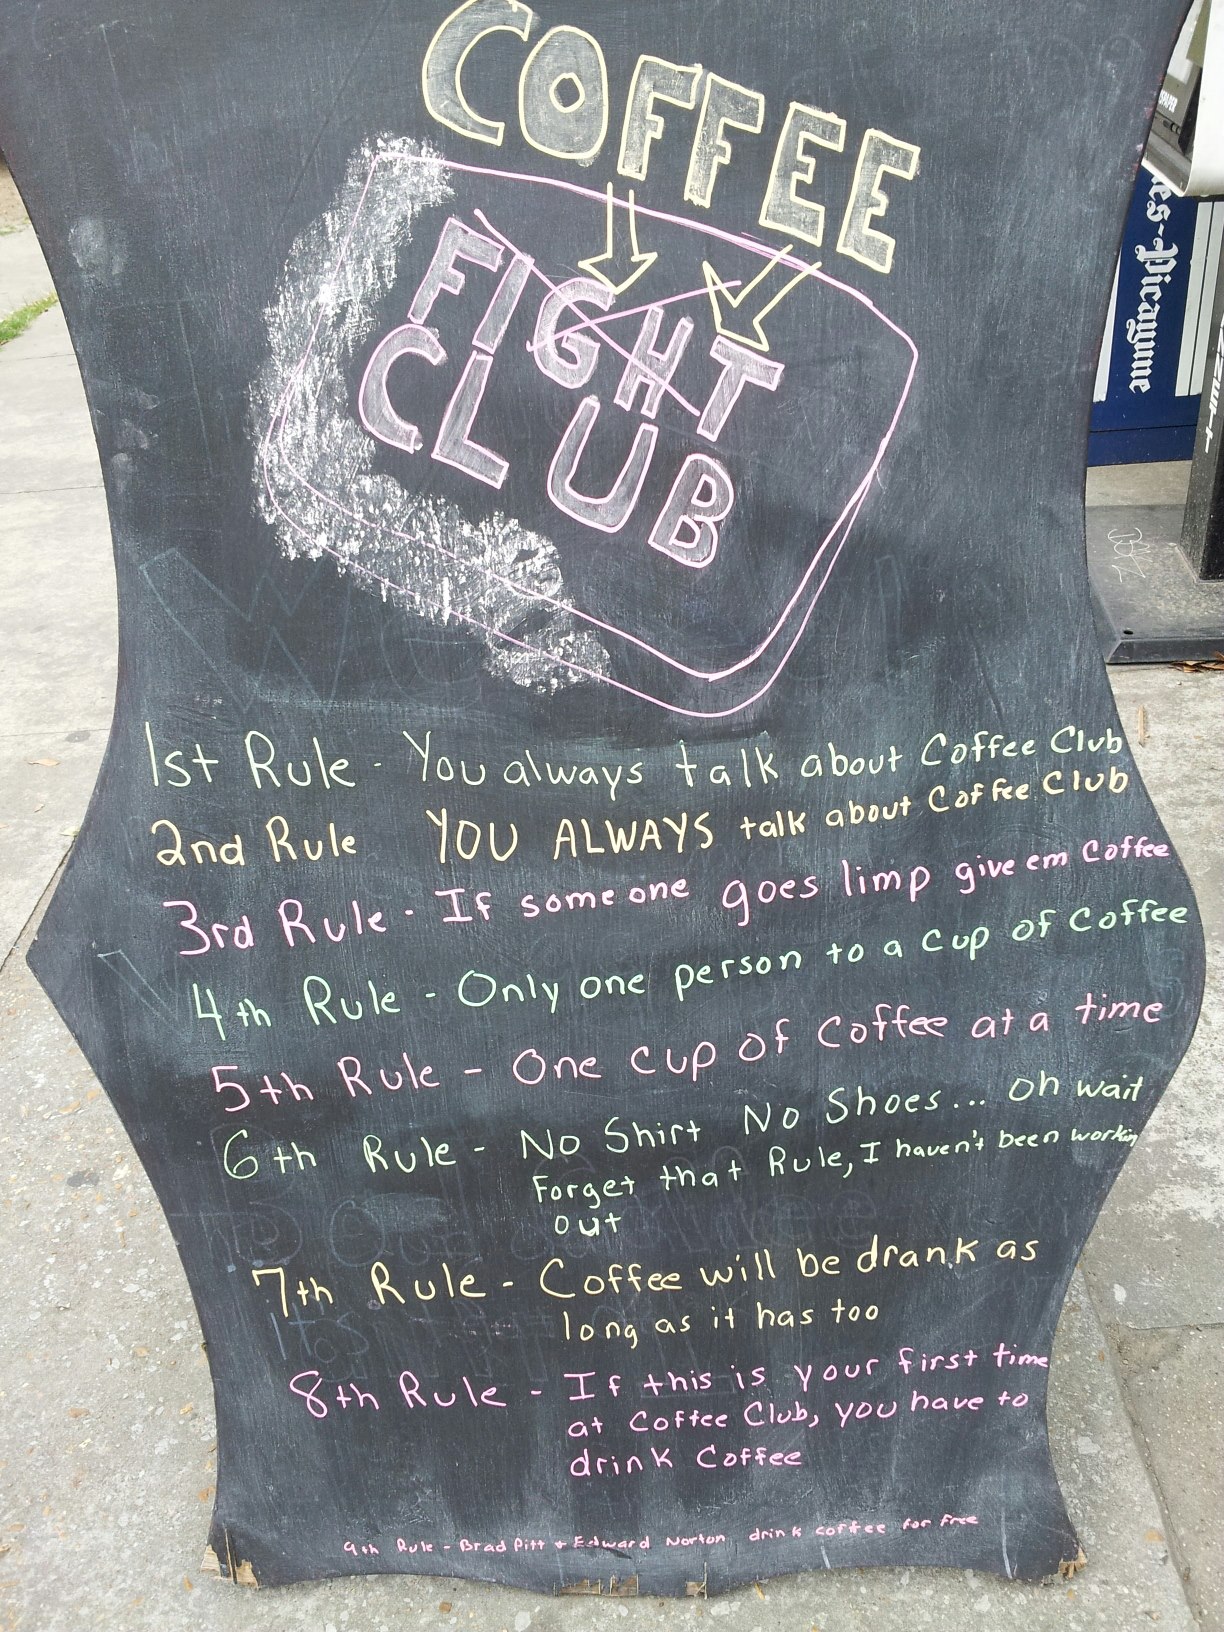 COFFEE
FIGHT
CLUB
1st Rule - You always talk about Coffee Club
2nd Rule YOU ALWAYS talk about Coffee Club
3rd Rule - If someone goes limp give em Coffee
4th Rule - Only one person to a cup of Coffee
5th Rule - One cup of Coffee at a time
6th Rule - No Shirt No Shoes... oh wait
Forget that Rule, I haven't been workin
out
7th Rule - Coffee will be drank as
long as it has too
8th Rule - If this is your first time
at Coffee Club, you have to
drink Coffee
9th Rule - Brad Pitt + Edward Norton drink coffee for free
es-Picayune